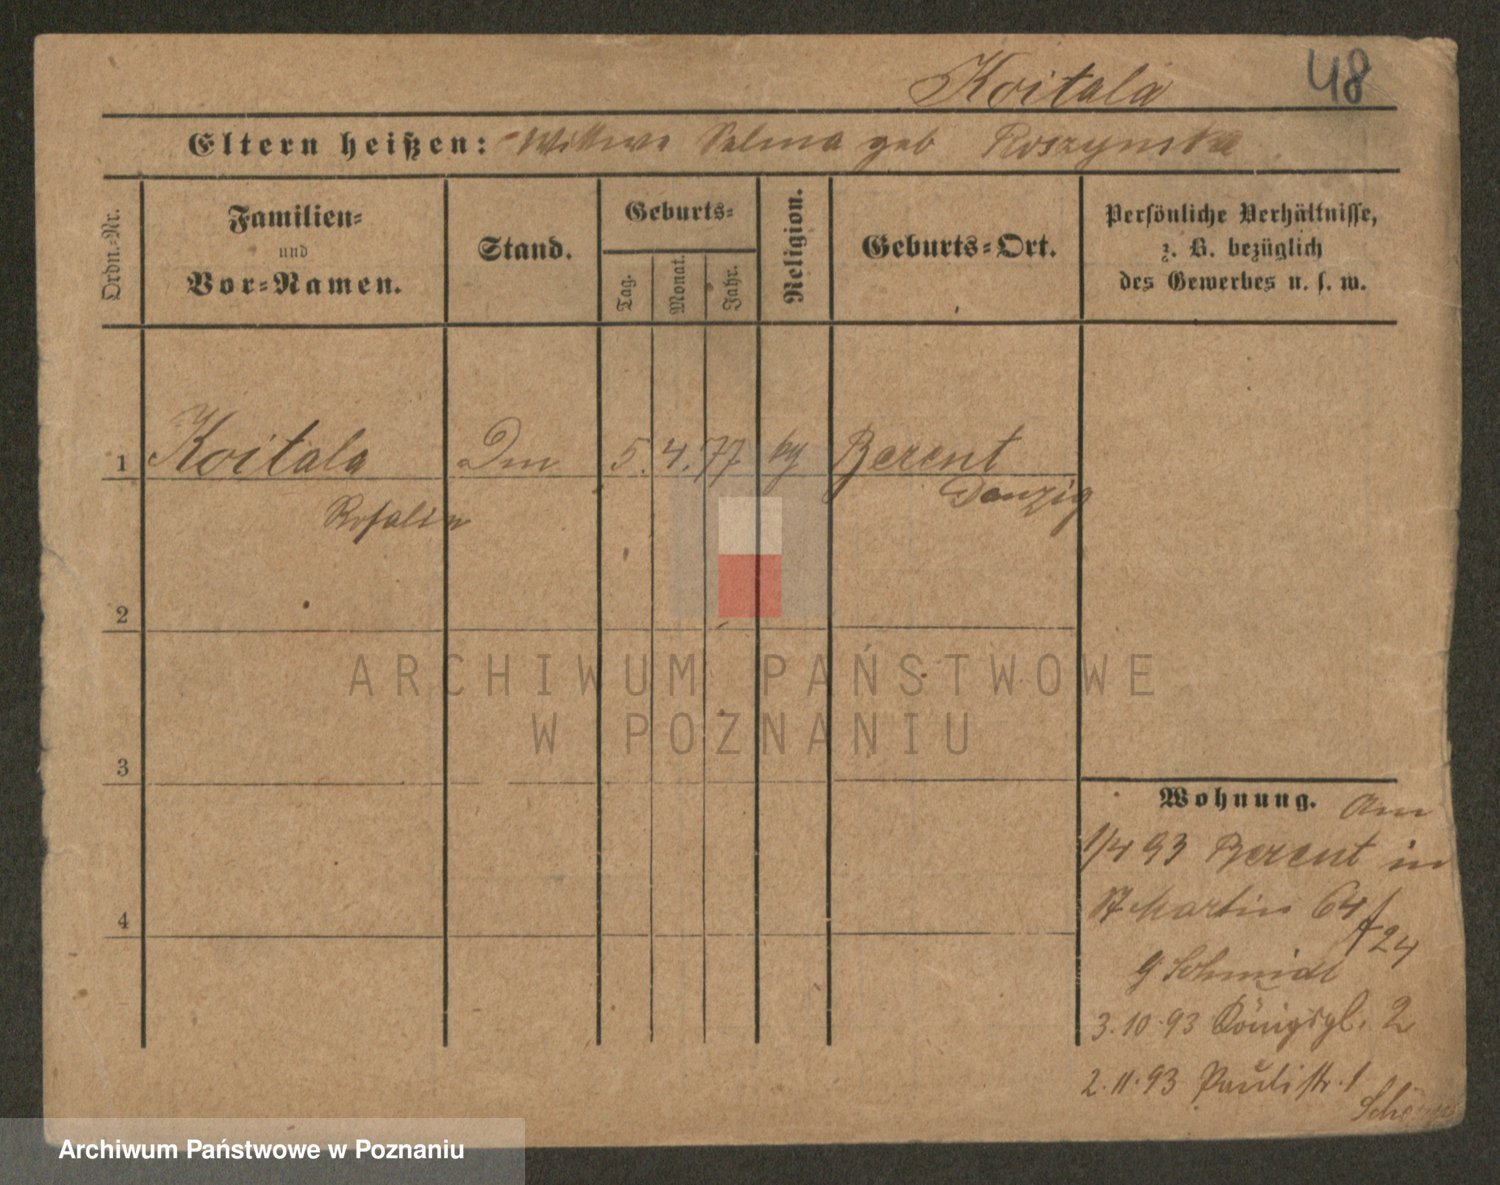 Koitala 48
Eltern heißen: Wittwe Salma geb Roszynska
Ordn.-Nr.
Familien-
und
Vor-Namen.
Stand.
Geburts-
Tag.
Monat.
Jahr.
Religion.
Geburts-Ort.
Persönliche Verhältnisse,
z. B. bezüglich
des Gewerbes u. s. w.
1 Koitala Dm 5. 4. 77 kg Berent
Danzig
Rosalie
2
3
4
ARCHIWUM PAŃSTWOWE
W POZNANIU
Wohnung. Am
1/4 93 Berent in
St Martin 64/
f 24
Schmidt
3.10.93 Königspl. 2
2.11.93 Paulistr. 1
Archiwum Państwowe w Poznaniu